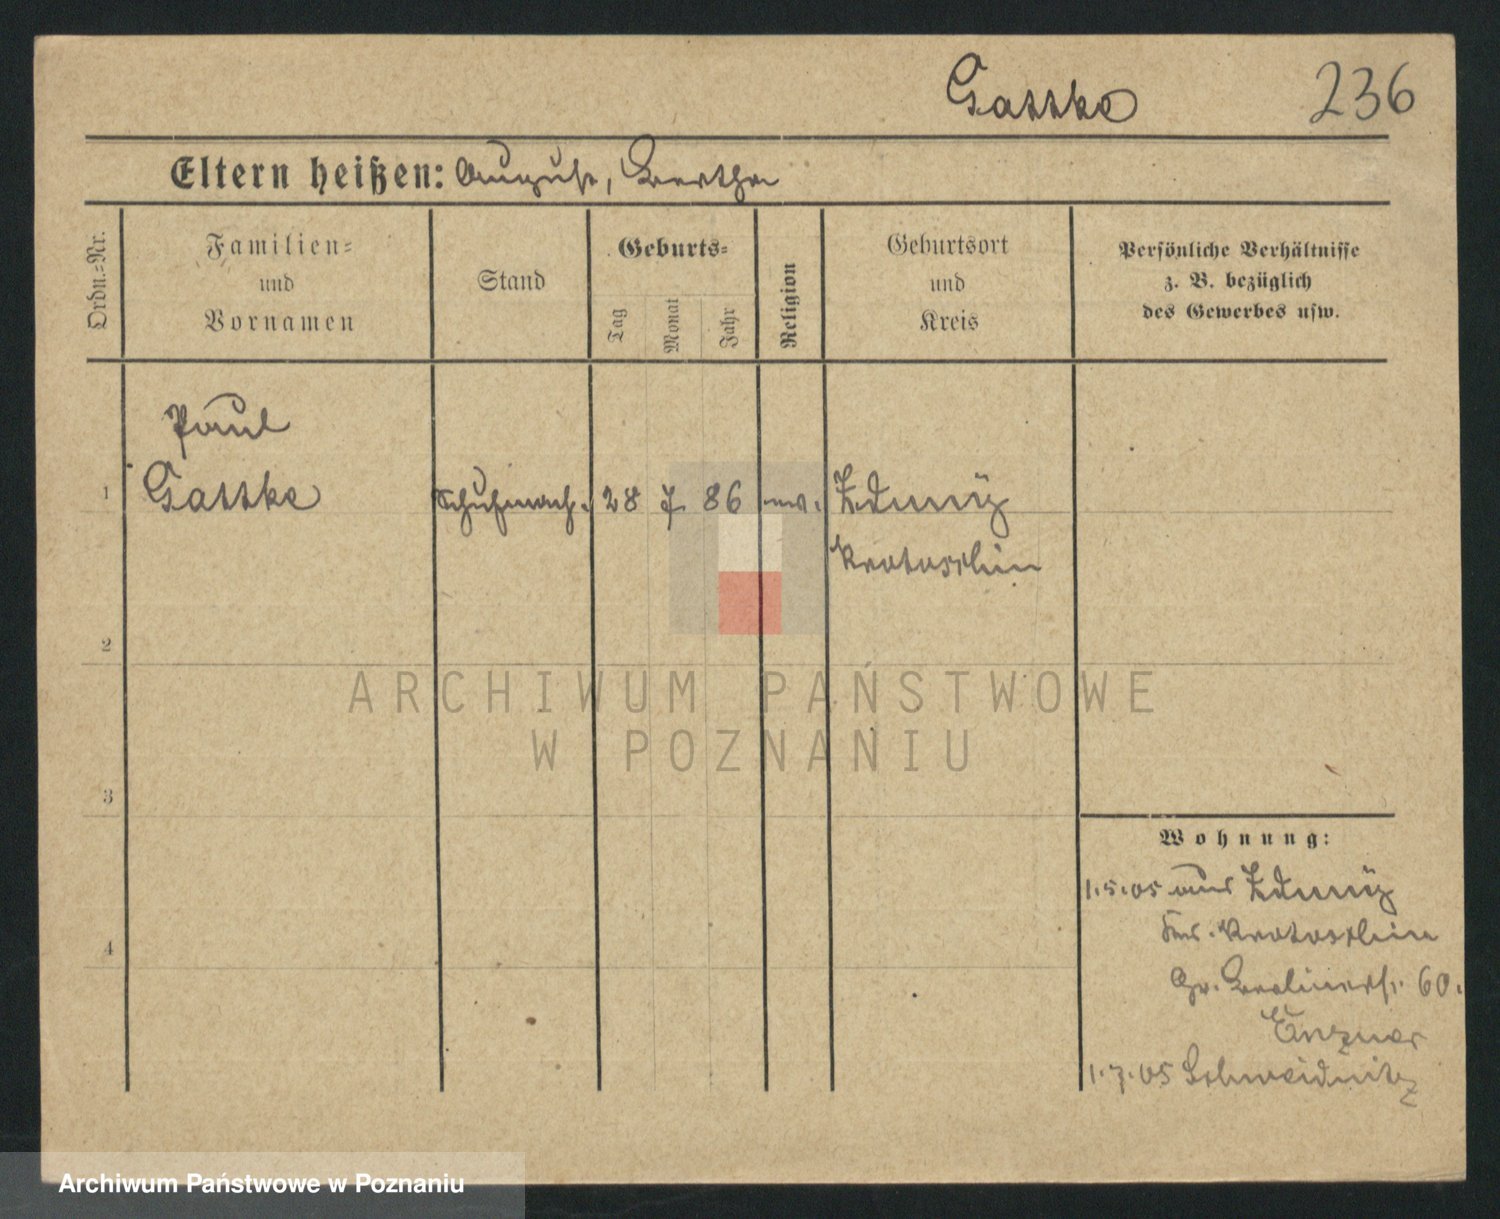 Gattke 236
Eltern heißen: August, Bertha
Ordn.=Nr.
Familien=
und
Vornamen
Stand
Geburts=
Tag
Monat
Jahr
Religion
Geburtsort
und
Kreis
Persönliche Verhältnisse
z. B. bezüglich
des Gewerbes usw.
Paul
1 Gattke Schuhmach. 28 7. 86 ev. Zduny
Krotoschin
2
ARCHIWUM PAŃSTWOWE
W POZNANIU
3
Wohnung:
1.5.05 aus Zduny
Krs. Krotoschin
4
Gr. Berlinerstr. 60.
1.7.05 Schweidnitz
Archiwum Państwowe w Poznaniu